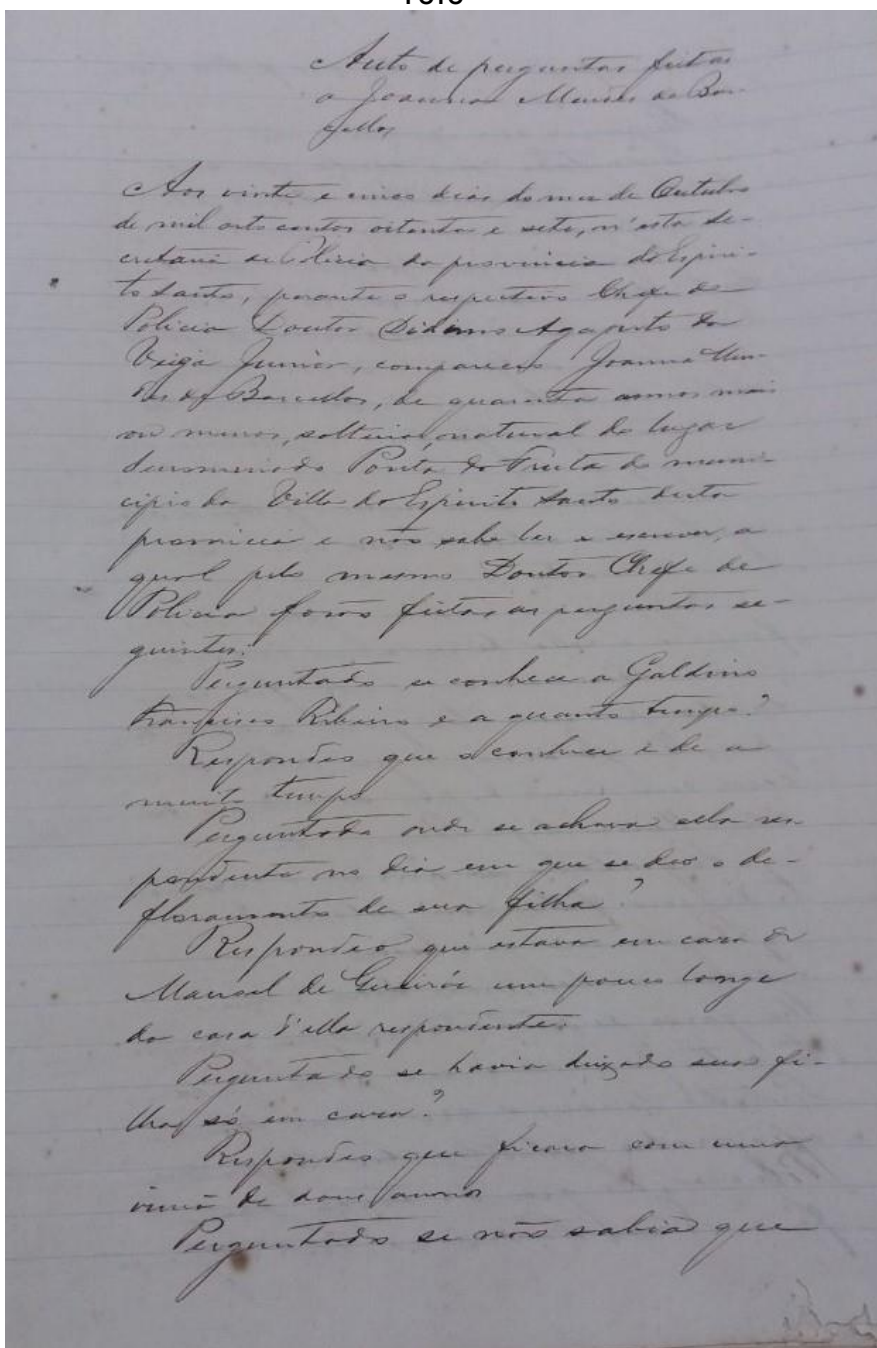 Auto de perguntas feitas
a Joanna Mendes de Bar-
cellos
Aos vinte e cinco dias do mez de Outubro
de mil oito centos oitenta e sete, n'esta Se-
cretaria de Policia da provincia do Espiri-
to Santo, perante o respectivo Chefe de
Policia Doutor Didimo Agapito da
Veiga Junior, compareceo Joanna Men-
des de Barcellos, de quarenta annos mais
ou menos, solteira, natural do lugar
denominado Ponta da Fruta do muni-
cipio da Villa do Espirito Santo desta
provincia e não sabe ler e escrever, a
qual pelo mesmo Doutor Chefe de
Policia forão feitas as perguntas se-
guintes:
Perguntado se conhece a Galdino
Francisco Ribeiro e a quanto tempo?
Respondeo que o conhece e de a
muito tempo
Perguntada onde se achava ella res-
pondente no dia em que se deo o de-
floramento de sua filha?
Respondeo que estava em casa de
Manoel de um pouco longe
da casa d'ella respondente.
Perguntado se havia deixado sua fi-
lha só em casa?
Respondeo que ficara com uma
irmã de doze annos
Perguntado se não sabia que